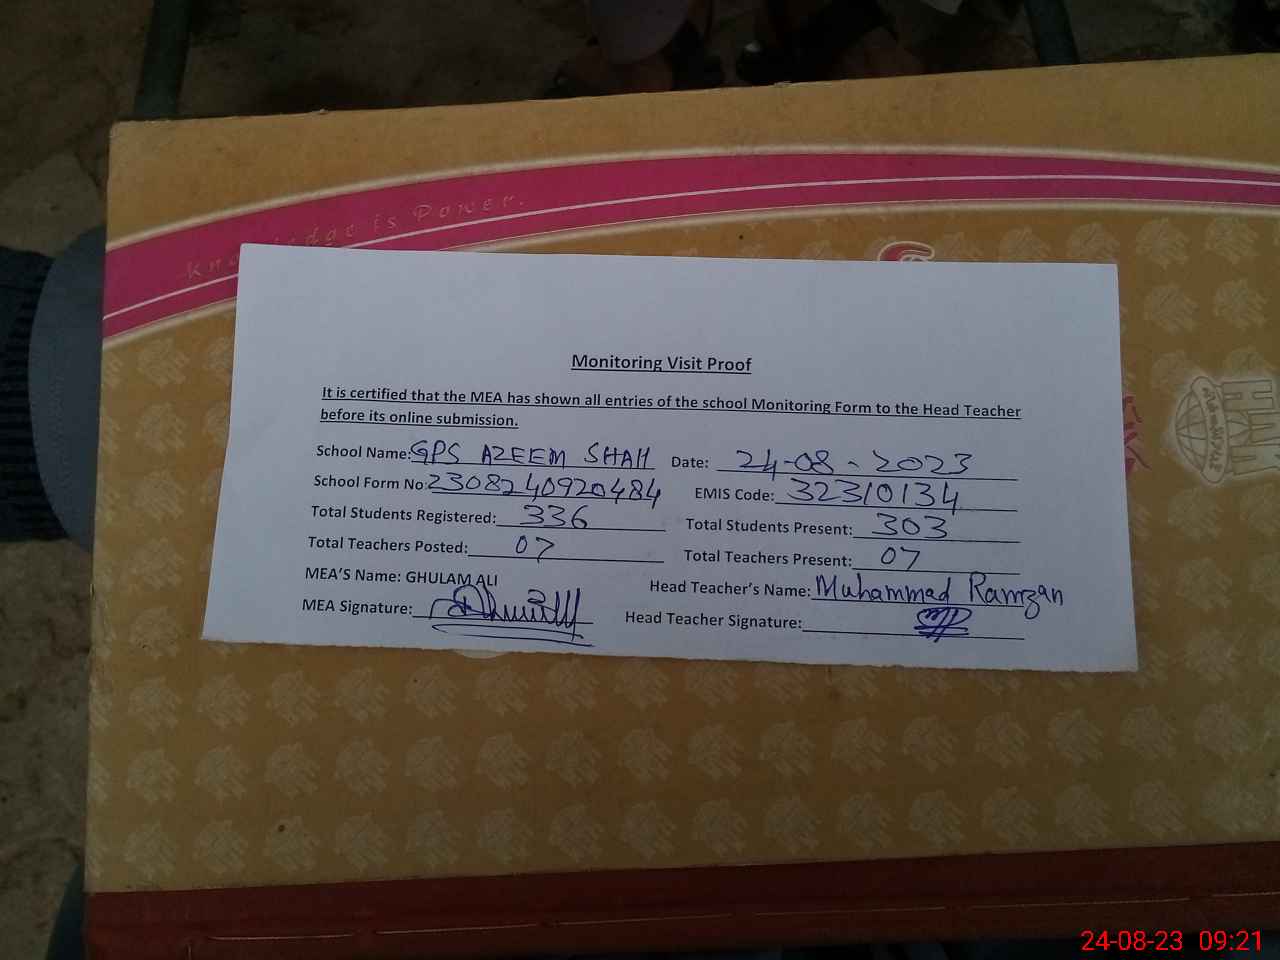 Knowledge is Power.
Monitoring Visit Proof
It is certified that the MEA has shown all entries of the school Monitoring Form to the Head Teacher
before its online submission.
School Name: GPS AZEEM SHAH Date: 24-08-2023
School Form No: 2308240920484 EMIS Code: 32310134
Total Students Registered: 336 Total Students Present: 303
Total Teachers Posted: 07 Total Teachers Present: 07
MEA'S Name: GHULAM ALI Head Teacher's Name: Muhammad Ramzan
MEA Signature: Head Teacher Signature:
24-08-23 09:21